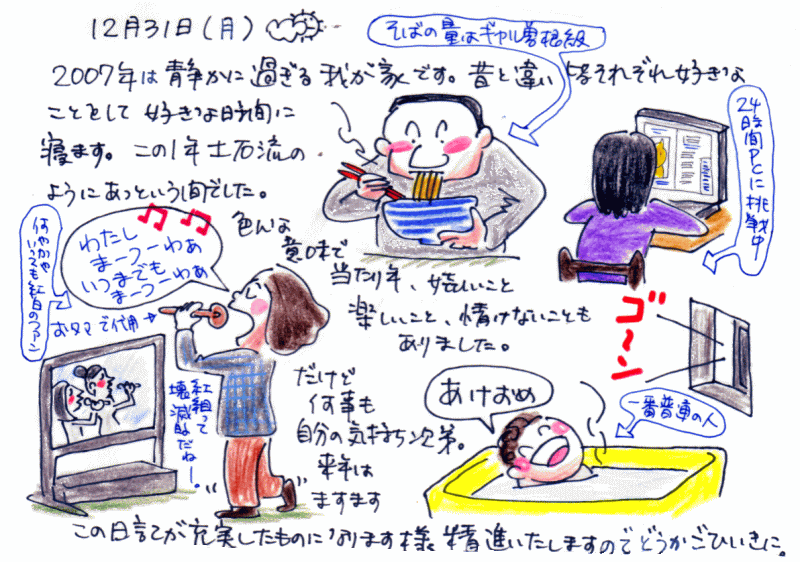 12月31日(月)
そばの量はギャル曽根級
2007年は静かに過ぎる我が家です。昔と違い皆それぞれ好きな
ことをして好きな時間に
寝ます。この1年土石流の
ようにあっという間でした。
24時間PCに挑戦中
何やかやいつも紅白のファン
わたし
まーつーわぁ
いつまでも
まーつーわぁ
おタマで代用
色んな
意味で
当たり年、嬉しいこと
楽しいこと、情けないことも
ありました。
ゴ〜ン
紅組って
壊滅的だねー。
だけど
何事も
自分の気持ち次第。
来年は
ますます
あけおめ
一番普通の人
この日記が充実したものになります様、精進いたしますのでどうかごひいきに。